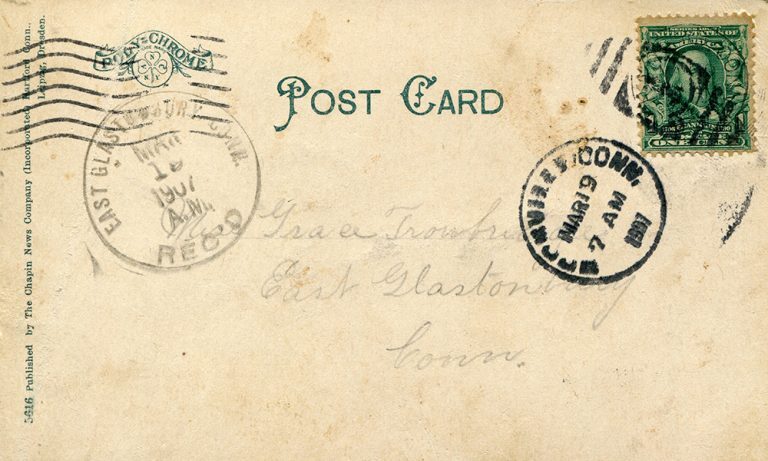 POLY-CHROME
POST CARD
SERIES 1902
UNITED STATES OF
AMERICA
ONE CENT
EAST GLASTONBURY CONN.
MAR
19
1907
A.M.
REC'D
CONN.
MAR 19
7 AM
1907
Grace
East Glastonbury
Conn.
5616 Published by The Chapin News Company (Incorporated) Hartford Conn.,
Leipzig, Dresden.